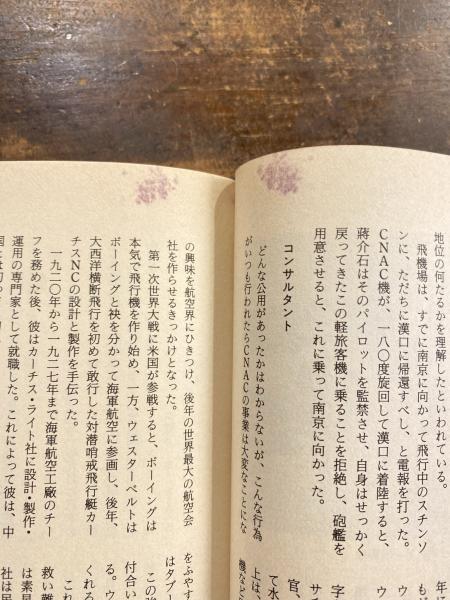 地位の何たるかを理解したといわれている。
飛機場は、すでに南京に向かって飛行中のスチンソ
ンに、ただちに漢口に帰還すべし、と電報を打った。
CNAC機が、一八〇度旋回して漢口に着陸すると、
蔣介石はそのパイロットを監禁させ、自身はせっかく
戻ってきたこの軽旅客機に乗ることを拒絶し、砲艦を
用意させると、これに乗って南京に向かった。
コンサルタント
どんな公用があったかはわからないが、こんな行為
がいつも行われたらCNACの事業は大変なことにな
字
官、
て水
上は、
機など
の興味を航空界にひきつけ、後年の世界最大の航空会
社を作らせるきっかけとなった。
第一次世界大戦に米国が参戦すると、ボーイングは
本気で飛行機を作り始め、一方、ウェスターベルトは
ボーイングと袂を分かって海軍航空に参画し、後年、
大西洋横断飛行を初めて敢行した対潜哨戒飛行艇カー
チスNCの設計と製作を手伝った。
一九二〇年から一九二七年まで海軍航空工廠のチー
フを務めた後、彼はカーチス・ライト社に設計・製作・
運用の専門家として就職した。これによって彼は、中
をふやす
はタブー
この
付合い
る。ウ
くれる
これ
救い難
は素早
社は民